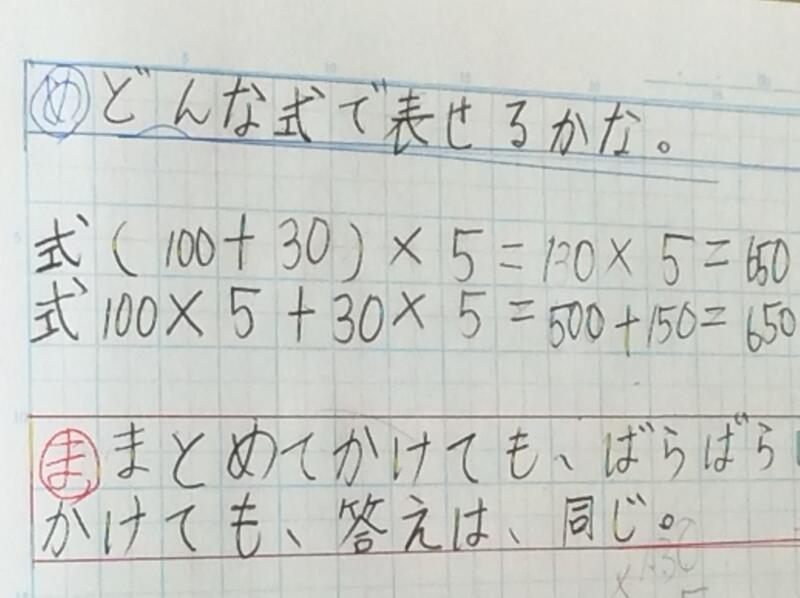 め どんな式で表せるかな。
式 (100+30)×5=130×5=650
式 100×5+30×5=500+150=650
ま まとめてかけても、ばらばら
かけても、答えは、同じ。